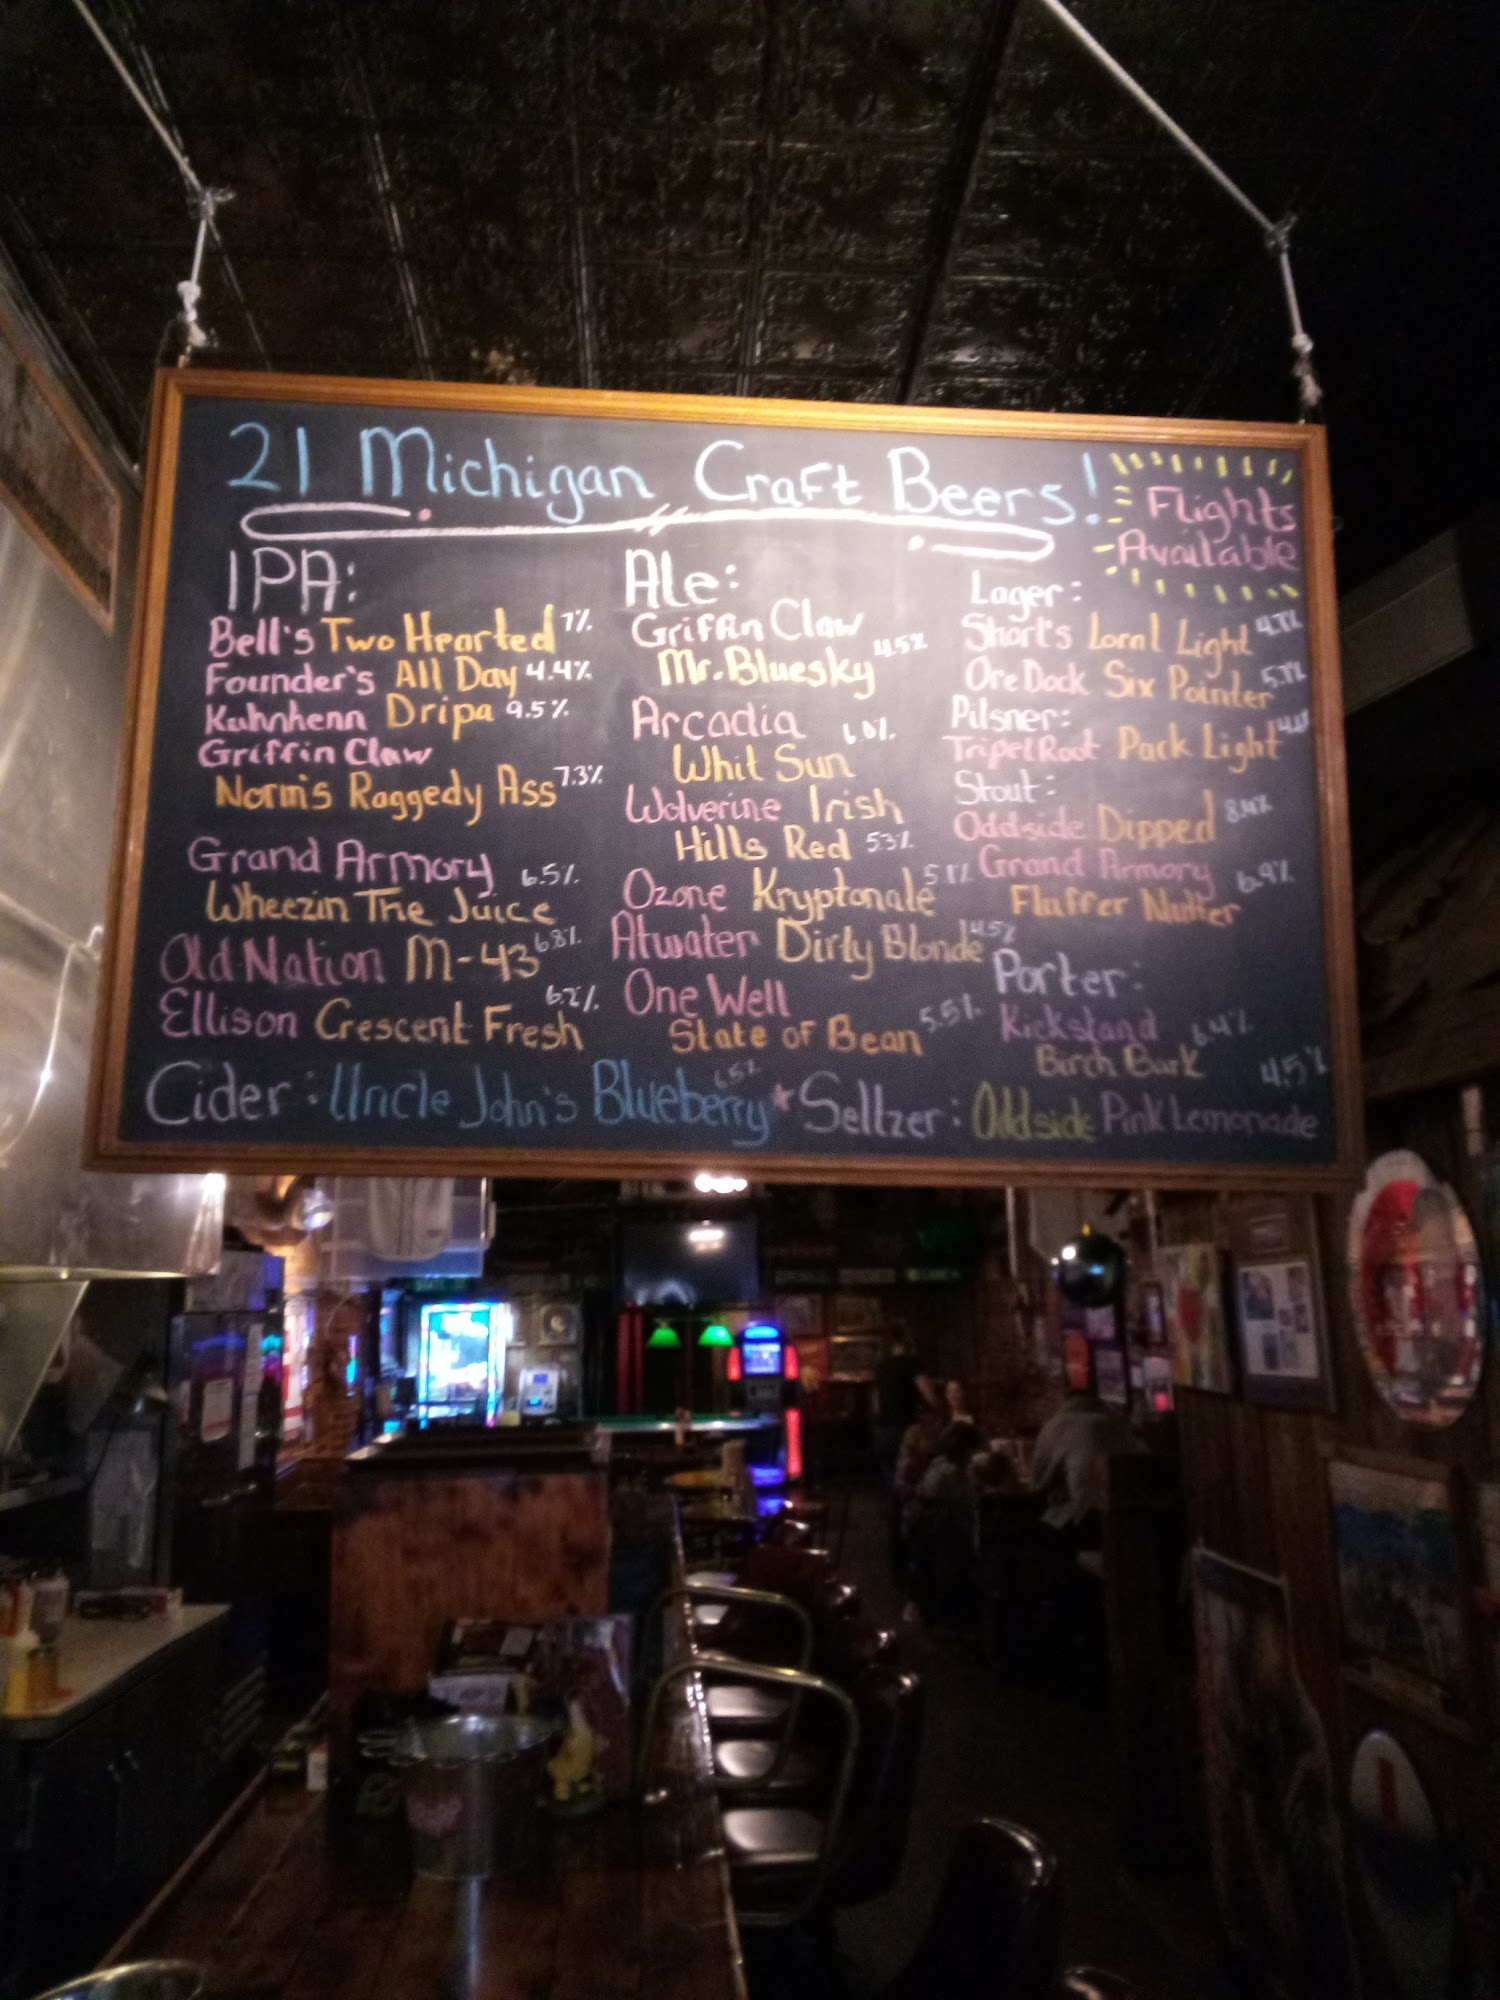 21 Michigan Craft Beers!
Flights
Available
IPA:
Bell's Two Hearted 7%
Founder's All Day 4.4%
Kuhnhenn Dripa 9.5%
Griffin Claw
Norm's Raggedy Ass 7.3%
Grand Armory 6.5%
Wheezin The Juice
Old Nation M-43 6.8%
Ellison Crescent Fresh 6.2%
Ale:
Griffin Claw
Mr. Bluesky 4.5%
Arcadia
Whit Sun
Wolverine Irish
Hills Red 5.3%
Ozone Kryptonale 5.1%
Atwater Dirly Blonde 4.5%
One Well
State of Bean 5.5%
Lager:
Short's Local Light
Ore Dock Six Pointer
Pilsner:
Tripel Root Pack Light
Stout:
Oddside Dipped
Grand Armory 6.9%
Fluffer Nutter
Porter:
Kickstand
Birch Bark 6.4%
Cider: Uncle John's Blueberry 6.5% * Seltzer: Oddside Pink Lemonade 4.5%